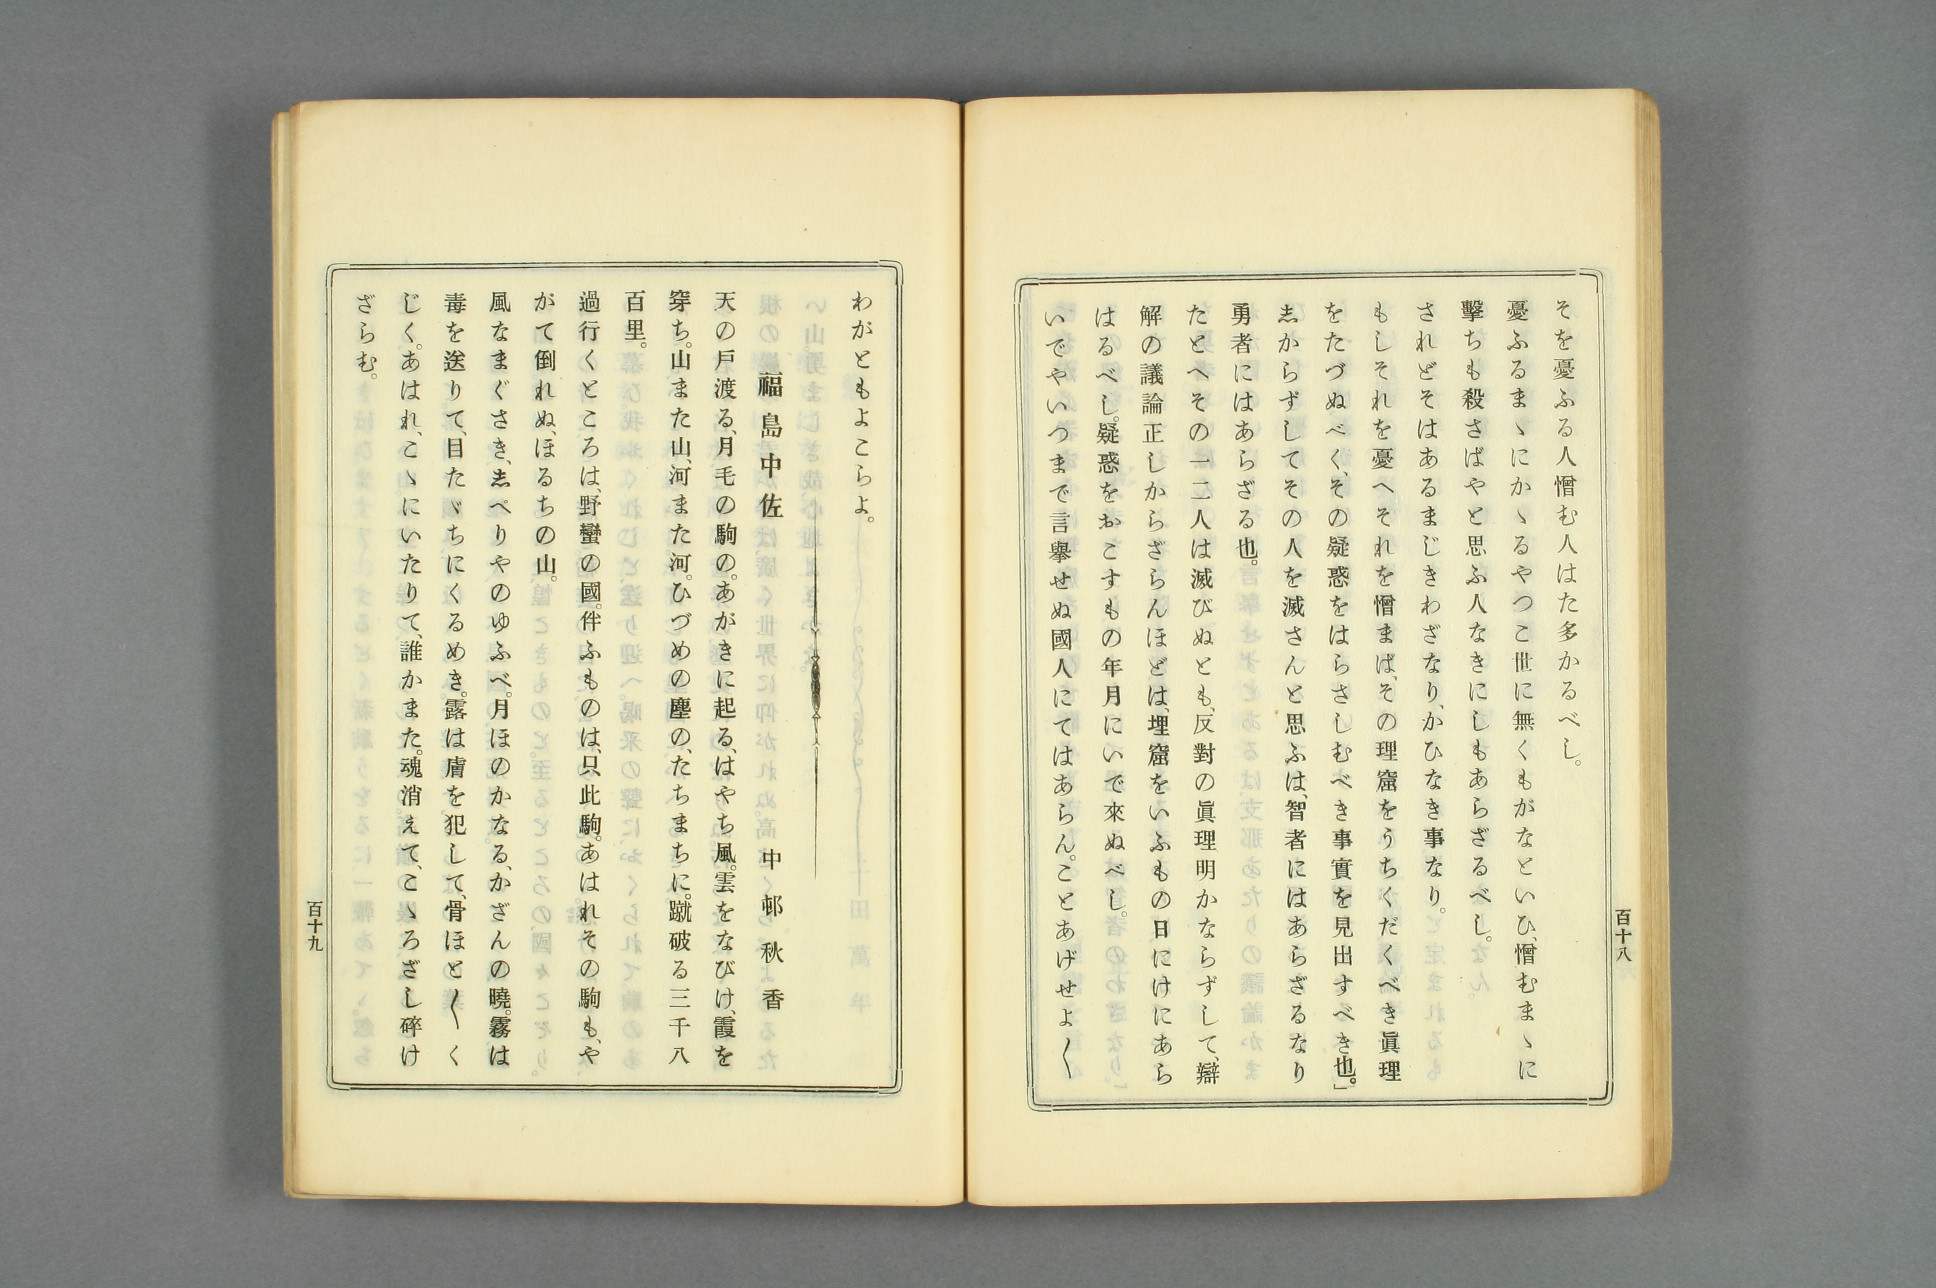 百十八
そを憂ふる人憎む人はた多かるべし。
憂ふるまゝにかゝるやつこ世に無くもがなといひ、憎むまゝに
擊ちも殺さばやと思ふ人なきにしもあらざるべし。
されどそはあるまじきわざなり、かひなき事なり。
もしそれを憂へそれを憎まば、その理窟をうちくだくべき眞理
をたづぬべく、その疑惑をはらさしむべき事實を見出すべき也。」
志からずしてその人を滅さんと思ふは、智者にはあらざるなり
勇者にはあらざる也。
たとへその一二人は滅びぬとも、反對の眞理明かならずして、辯
解の議論正しからざらんほどは、埋窟をいふもの日にけにあら
はるべし。疑惑をおこすもの年月にいで來ぬべし。
いでやいつまで言擧せぬ國人にてはあらん。ことあげせよ〱
わがともよこらよ。
福島中佐 中邨秋香
天の戸渡る、月毛の駒の。あがきに起る、はやち風。雲をなびけ、霞を
穿ち。山また山、河また河。ひづめの塵の、たちまちに。蹴破る三千八
百里。
過行くところは、野蠻の國。伴ふものは、只此駒。あはれその駒も、や
がて倒れぬ、ほるちの山。
風なまぐさき、志べりやのゆふべ。月ほのかなる、かざんの曉。霧は
毒を送りて、目たゞちにくるめき。露は膚を犯して、骨ほと〱く
じく。あはれ、こゝにいたりて、誰かまた。魂消えて、こゝろざし碎け
ざらむ。
百十九